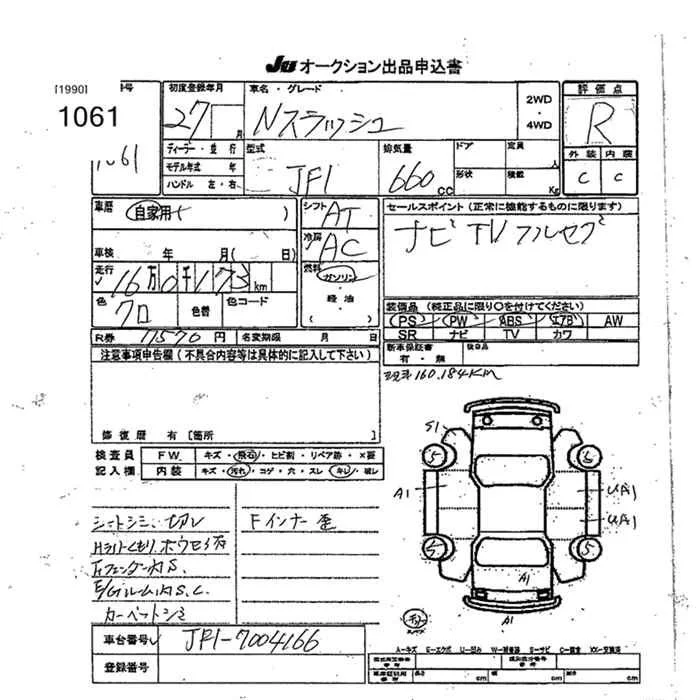 JU オークション出品申込書
[1990] 号
1061
1061
初度登録年月
27 月
車名・グレード
Nスラッシュ
2WD
・
4WD
評価点
R
ディーラー・並行
モデル年式 年
ハンドル 左・右
型式
JF1
排気量
660 cc
ドア
形状
定員 人
積載 Kg
外装 内装
C C
車歴
自家用
シフト AT
冷房 AC
セールスポイント (正常に機能するものに限ります)
ナビ TV フルセグ
車検 年 月( 日)
走行
16万0千173 km
燃料
ガソリン
・
軽油
・
( )
色
クロ
色替
色コード
装備品 (純正品に限り○を付けてください)
PS PW ABS エアB AW
SR ナビ TV カワ
R券 11570 円 名変期限 月 日
新車保証書
有・無
後日品
注意事項申告欄 (不具合内容等は具体的に記入して下さい)
現示160.184KM
修復歴 有 [箇所 ]
検査員 FW キズ・飛石・ヒビ割・リペア跡・×要
記入欄 内装 キズ・汚れ・コゲ・穴・スレ・キレ・破レ
シートシミ、切レ
Fインナー歪
カーペットシミ
S1
5 5
A1
UA1
UA1
5 5
A1
A1
車台番号
JF1-7004166
登録番号
A-キズ E-エクボ U-凹み W-補修跡 S-サビ C-腐食 XX-交換済
長さ cm 幅 cm 高さ cm